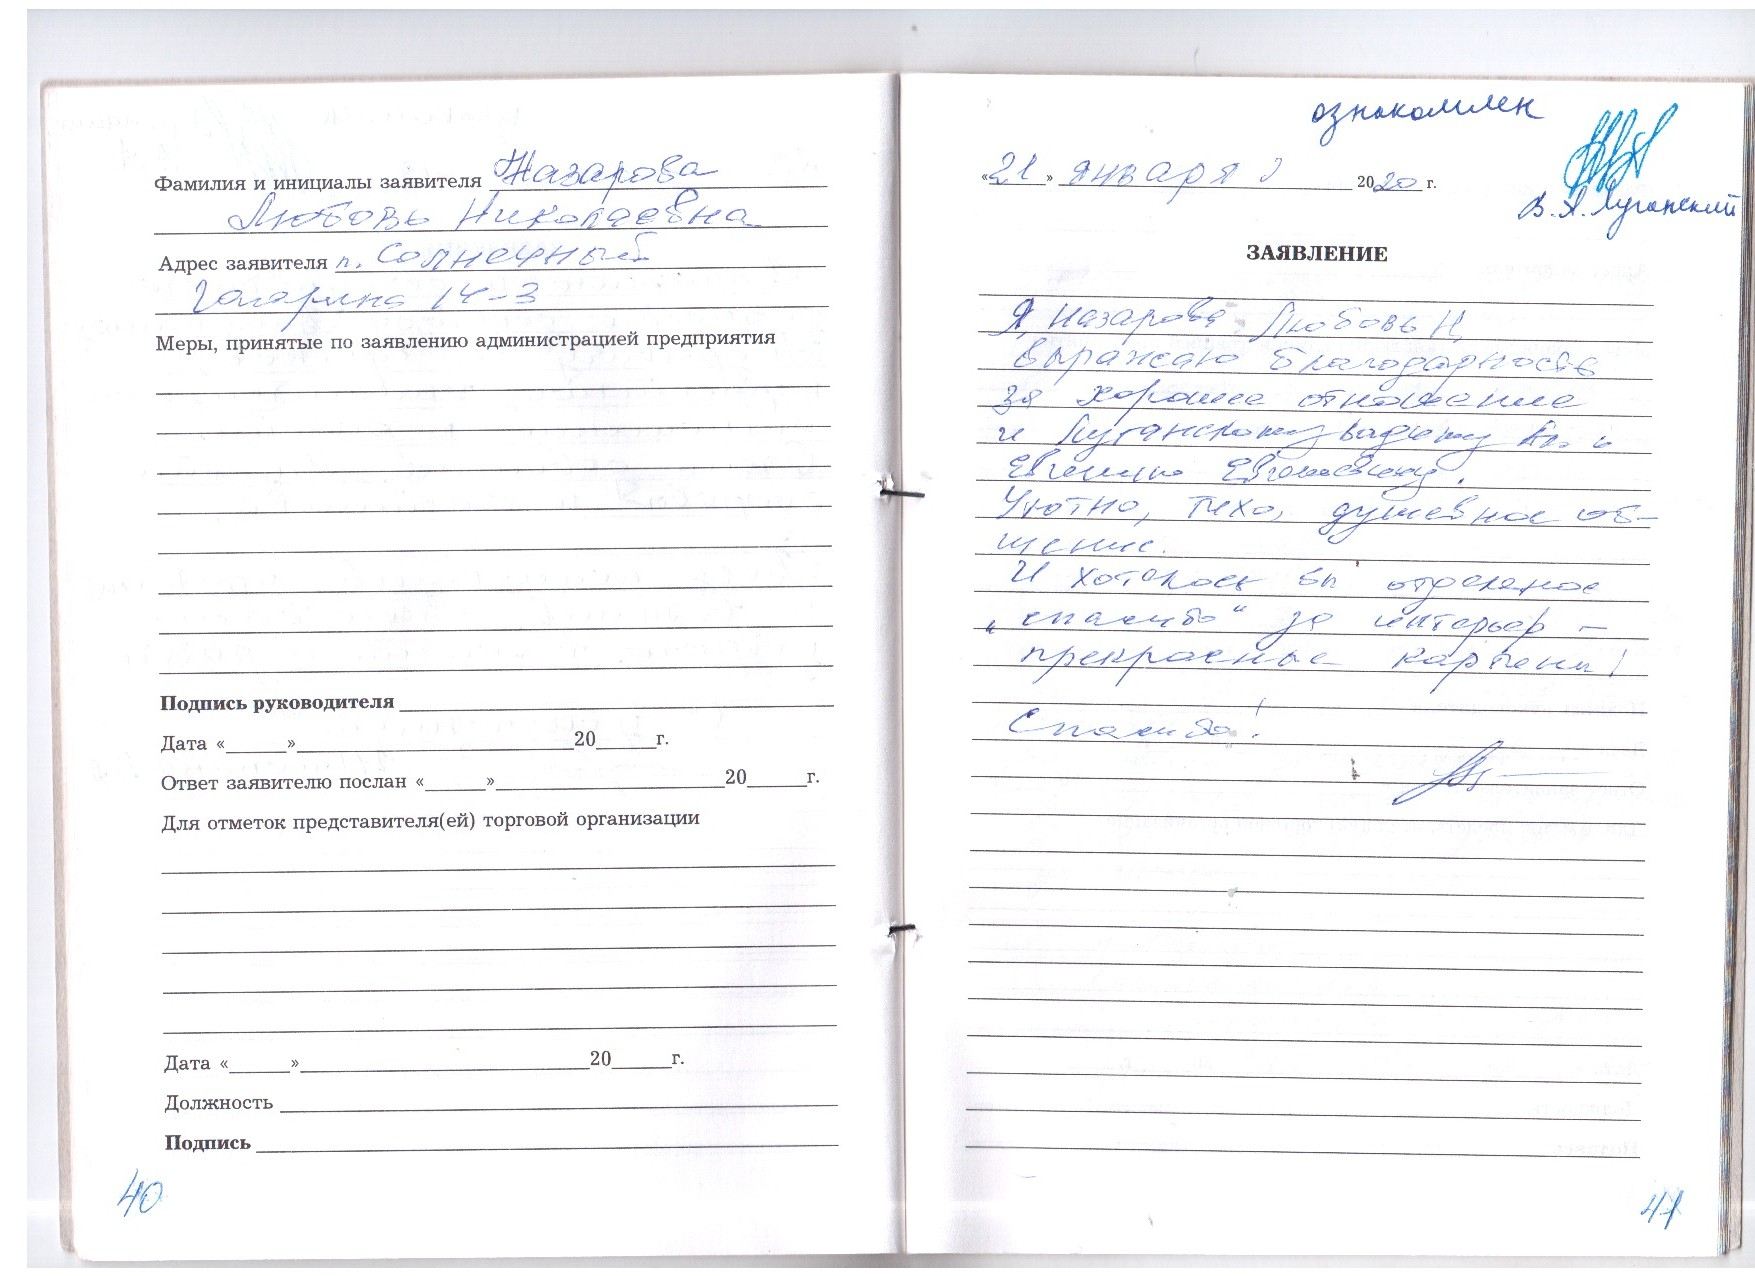 Фамилия и инициалы заявителя Назарова
Любовь Николаевна
Адрес заявителя п. Солнечный
Гагарина 14-3
Меры, принятые по заявлению администрацией предприятия
Подпись руководителя
Дата «______»____________________20______г.
Ответ заявителю послан «______»____________________20______г.
Для отметок представителя(ей) торговой организации
Дата «______»____________________20______г.
Должность
Подпись
40
ознакомлен
«21» января 2020 г.
В.А. Луганский
ЗАЯВЛЕНИЕ
Я, Назарова Любовь Н,
выражаю благодарность
за хорошее отношение
и Луганскому Вадиму Ан. и
Евгению Евгеньевичу.
Уютно, тихо, душевное об-
щение.
И хотелось бы отдельное
„спасибо“ за интерьер –
прекрасные картины!
Спасибо!
41